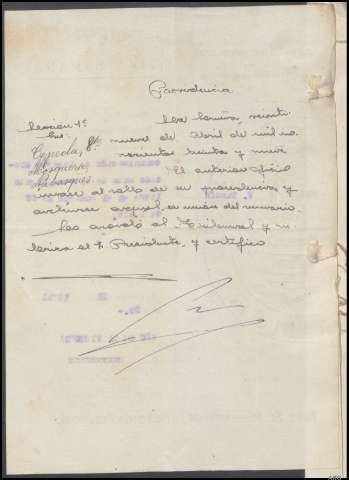 Providencia
Sección 1ª
La Coruña, veinti
Sres
nueve de Abril de mil no
Cepeda, Pte
vecientos treinta y nueve
El anterior oficio
únase al rollo de su procedencia y
archívese aquel en unión del sumario.
Lo acordó el Tribunal y ru
brica el Sr Presidente, y certifico